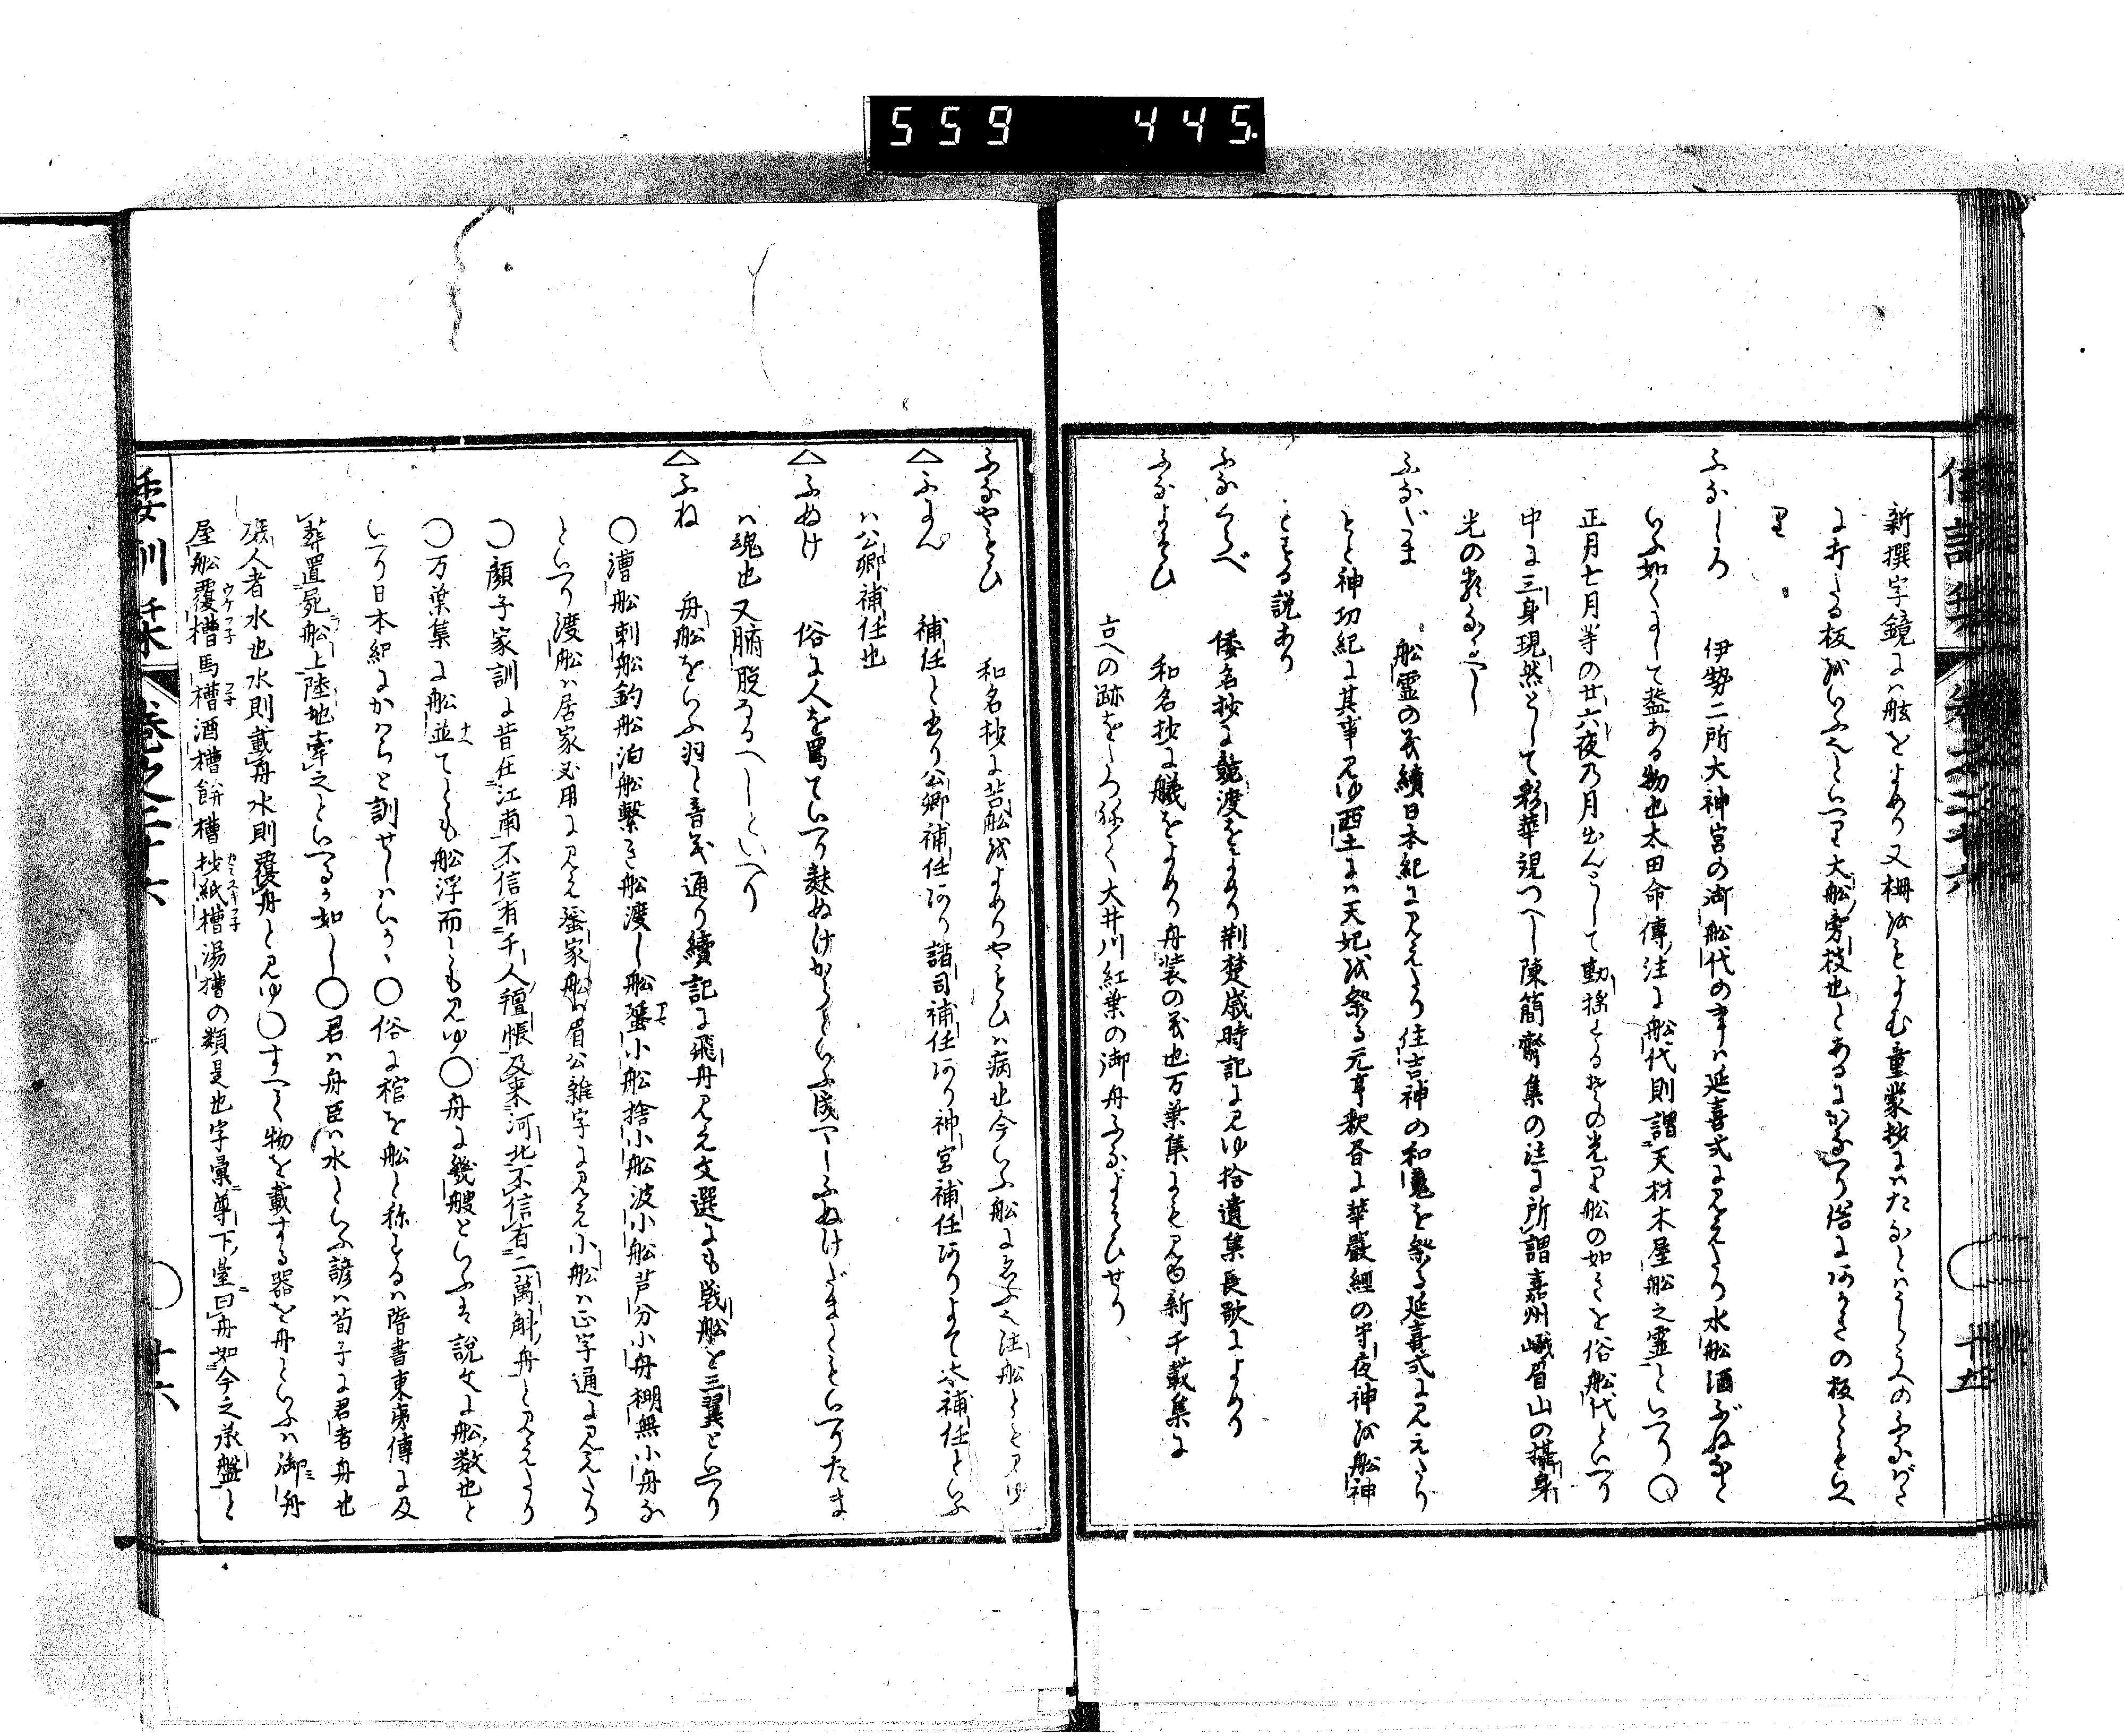 559 445
新撰字鏡に舷をよめり又柵をもよむ童蒙抄にたなとはうしろへのふなばた
に打たる板をいふ也といへり大舩旁枝也とあるにかなへり俗にの板ともいへ
り
ふなしろ 伊勢二所大神宮の御舩代の事は延喜式に見えたり水舩酒ぶねなと
いふ如くにして葢ある物也太田命傳注に舩代則謂天材木屋舩之霊といへり〇
正月七月等の廿六夜の月出んとして動揺する其の光り舩の如きを俗舩代といへり
中に三身現然として彩華現つへし陳簡齋集の注に所謂嘉州峨眉山の攝身
光の類なるへし
ふなだま 舩霊の義續日本紀に見えたり住吉神の和魂を祭る延喜式に見えたり
こと神功紀に其事見ゆ西土には天妃を祭る元亨釈書に華嚴經の守夜神を舩神
とする説あり
ふなくらべ 倭名抄に競渡をよめり荊楚歳時記に見ゆ拾遺集長歌によめり
ふなよそひ 和名抄に艤をよめり舟装の義也万葉集にも見ゆ新千載集に
古への跡をしるく大井川紅葉の御舟ふなよそひせり
倭訓栞 巻之二十六 十五
ふなやもひ 和名抄に苫舩をよめりやもひは病也今いふ舩にゑふ也注舩とも見ゆ
△ふにん 補任と書り公卿補任あり諸司補任あり神宮補任ありよて補任といふ
は公卿補任也
△ふぬけ 俗に人を罵ていへり麩ぬけからといふ成へしふぬけだましともいへりたま
は魂也又腑脱なるへしといへり
△ふね 舟舩をいふ羽と音義通り續記に飛舟見え文選にも戦舩を三翼といへり
〇漕舩刺舩釣舩泊舩繋き舩渡し舩蜑小舩捨小舩波小舩芦分小舟棚無小舟な
といへり渡舩は居家必用に見え蜑家舩は眉公雑字に見え小舩は正字通に見えたり
〇顔子家訓に昔在江南不信有千人氈帳及来河北不信有二萬斛舟と見えたり
〇万葉集に舩並てとも舩浮而とも見ゆ〇舟に幾艘といふは説文に舩数也と
いへり日本紀にかはらと訓せしはいかゝ〇俗に棺を舩と称するは隋書東夷傳に及
葬置屍舩上陸地牽之といへるか如し〇君は舟臣は水といふ諺は荀子に君者舟也
庶人者水也水則載舟水則覆舟と見ゆ〇すへて物を載する器を舟といふは御舟
屋舩覆槽馬槽酒槽餅槽抄紙槽湯槽の類是也字彙尊下臺曰舟如今之承盤と
倭訓栞 巻之二十六 十六